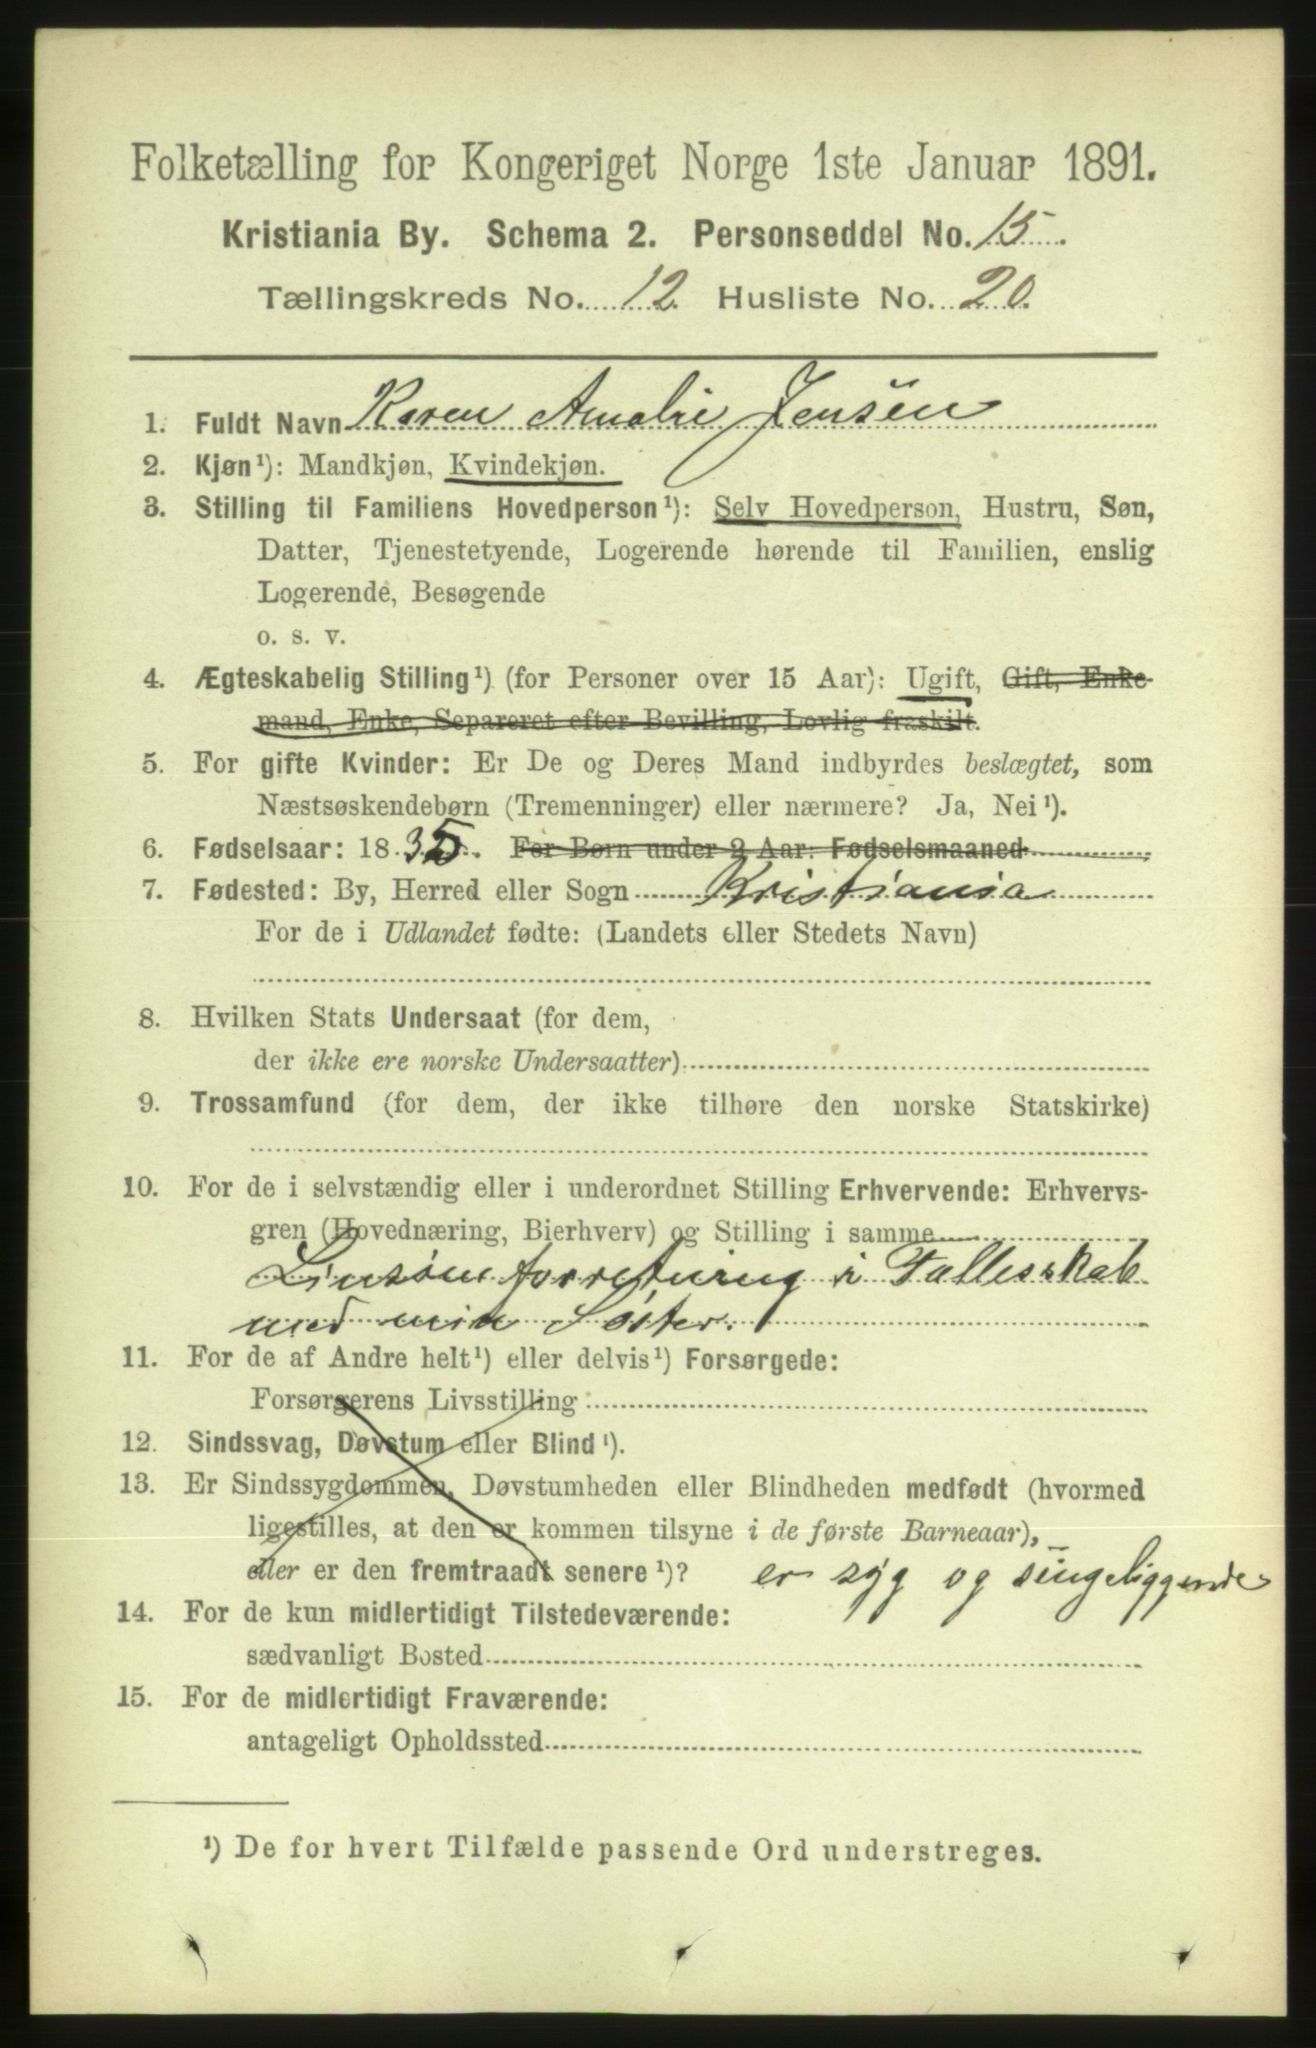 Folketælling for Kongeriget Norge 1ste Januar 1891.
Kristiania By. Schema 2. Personseddel No. 15.
Tællingskreds No. 12 Husliste No. 20.
1. Fuldt Navn Karen Amalie Jensen
2. Kjøn¹): Mandkjøn, Kvindekjøn.
3. Stilling til Familiens Hovedperson¹): Selv Hovedperson, Hustru, Søn,
Datter, Tjenestetyende, Logerende hørende til Familien, enslig
Logerende, Besøgende
o. s. v.
4. Ægteskabelig Stilling¹) (for Personer over 15 Aar): Ugift, Gift, Enke-
mand, Enke, Separeret efter Bevilling, Lovlig fraskilt.
5. For gifte Kvinder: Er De og Deres Mand indbyrdes beslægtet, som
Næstsøskendebørn (Tremenninger) eller nærmere? Ja, Nei¹).
6. Fødselsaar: 1835. For Børn under 2 Aar: Fødselsmaaned
7. Fødested: By, Herred eller Sogn Kristiania
For de i Udlandet fødte: (Landets eller Stedets Navn)
8. Hvilken Stats Undersaat (for dem,
der ikke ere norske Undersaatter)
9. Trossamfund (for dem, der ikke tilhøre den norske Statskirke)
10. For de i selvstændig eller i underordnet Stilling Erhvervende: Erhvervs-
gren (Hovednæring, Bierhverv) og Stilling i samme
Linsömforretning i Fallesskab
med min Söster.
11. For de af Andre helt¹) eller delvis¹) Forsørgede:
Forsørgerens Livsstilling
12. Sindssvag, Døvstum eller Blind¹).
13. Er Sindssygdommen, Døvstumheden eller Blindheden medfødt (hvormed
ligestilles, at den er kommen tilsyne i de første Barneaar),
eller er den fremtraadt senere¹)? er syg og sengeliggende
14. For de kun midlertidigt Tilstedeværende:
sædvanligt Bosted
15. For de midlertidigt Fraværende:
antageligt Opholdssted
¹) De for hvert Tilfælde passende Ord understreges.